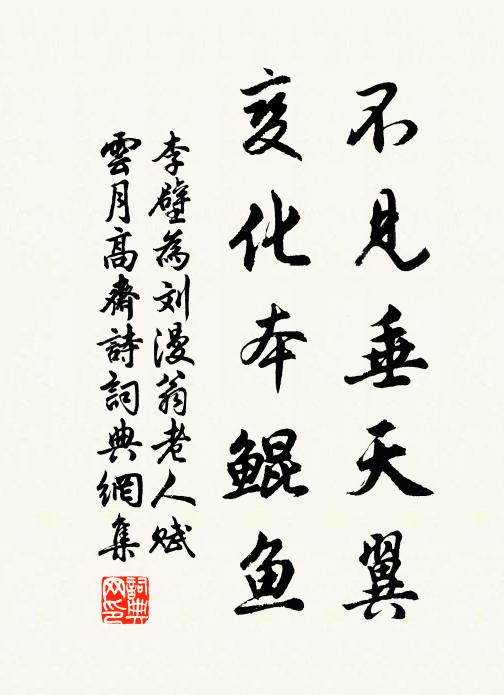 不见垂天翼
变化本鲲鱼
李壁為刘漫翁老人赋
雲月高齋詩詞典網集
詞典網印